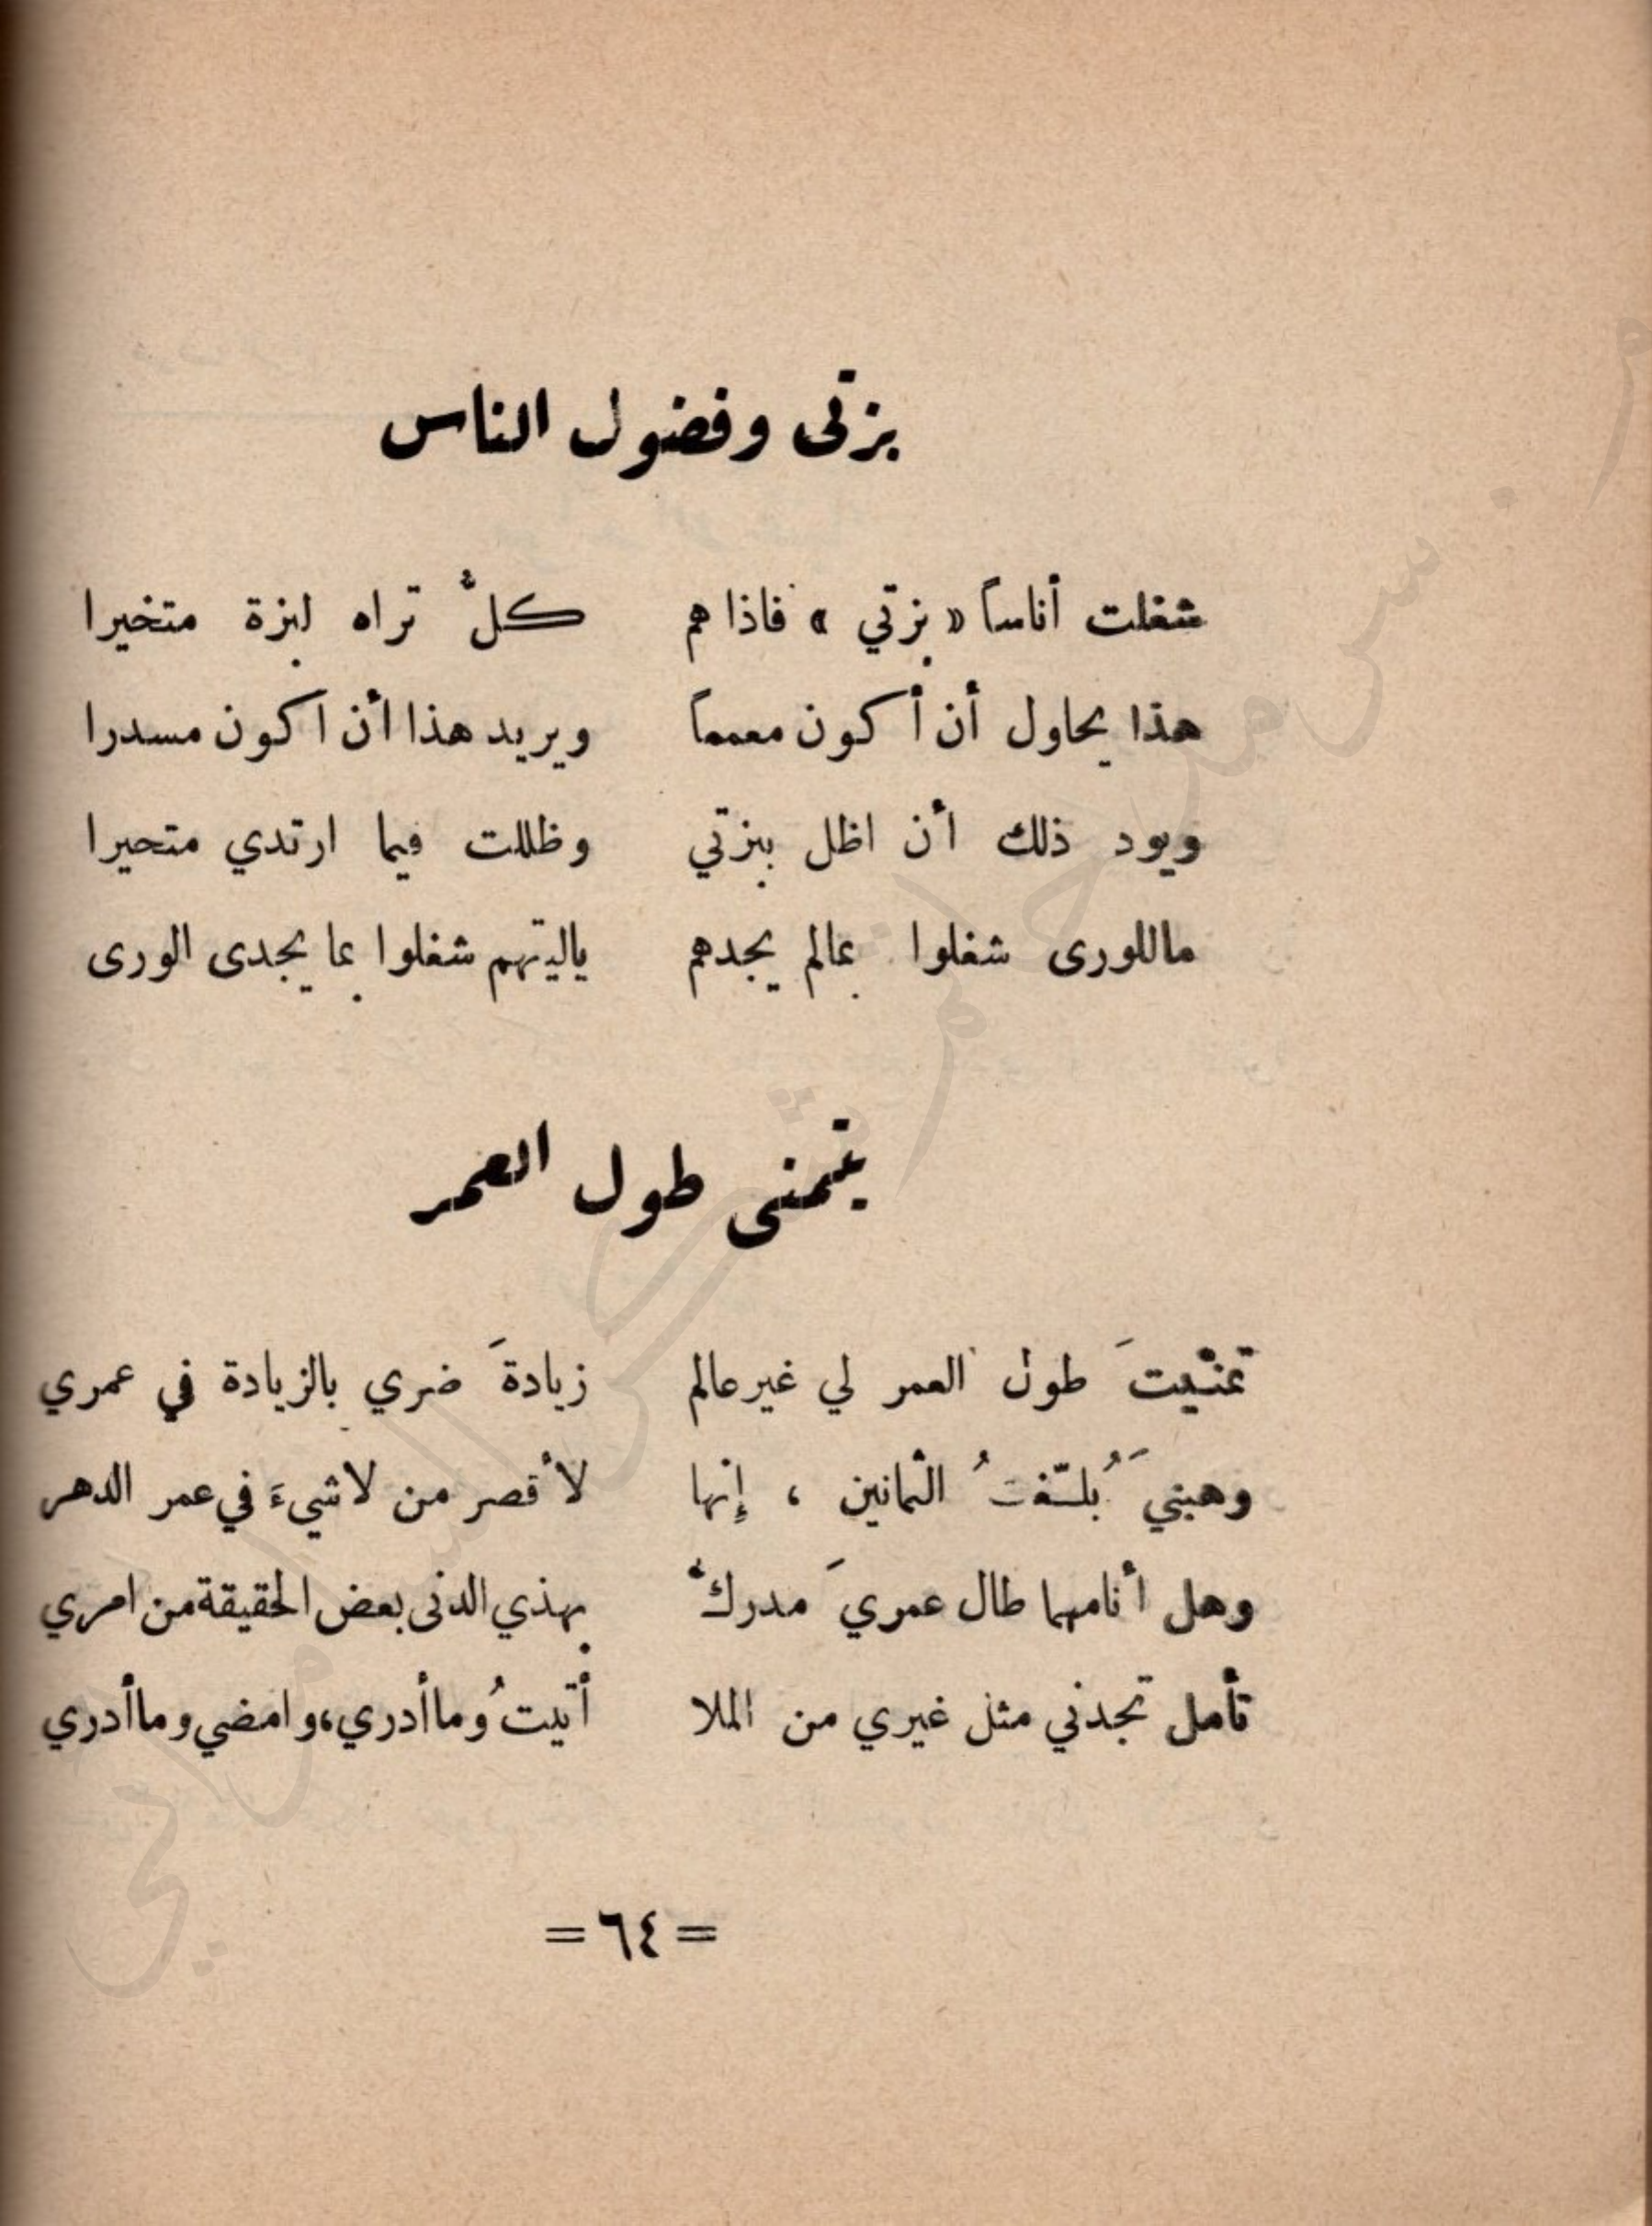 بزتى وفضول الناس
شغلت أناساً « بزتي » فاذا هم    كلٌّ تراه لبزة متخيرا
هذا يحاول أن أكون معمماً    ويريد هذا أن اكون مسدرا
ويود ذلك أن اظل ببزتي    وظللت فيما ارتدي متحيرا
ماللورى شغلوا بمالم يجدهم    ياليتهم شغلوا بما يجدى الورى
يتمنى طول العمر
تمنّيتَ طول العمر لي غير عالم    زيادةَ ضري بالزيادة في عمري
وهبنيَ بُلّغتُ الثمانين ، إنها    لأقصر من لاشيءَ في عمر الدهر
وهل أنا مهما طال عمريَ مدركٌ    بهذي الدنى بعض الحقيقة من امري
تأمل تجدني مثل غيري من الملا    أتيتُ وما أدري، وامضي وما أدري
= ٦٤ =